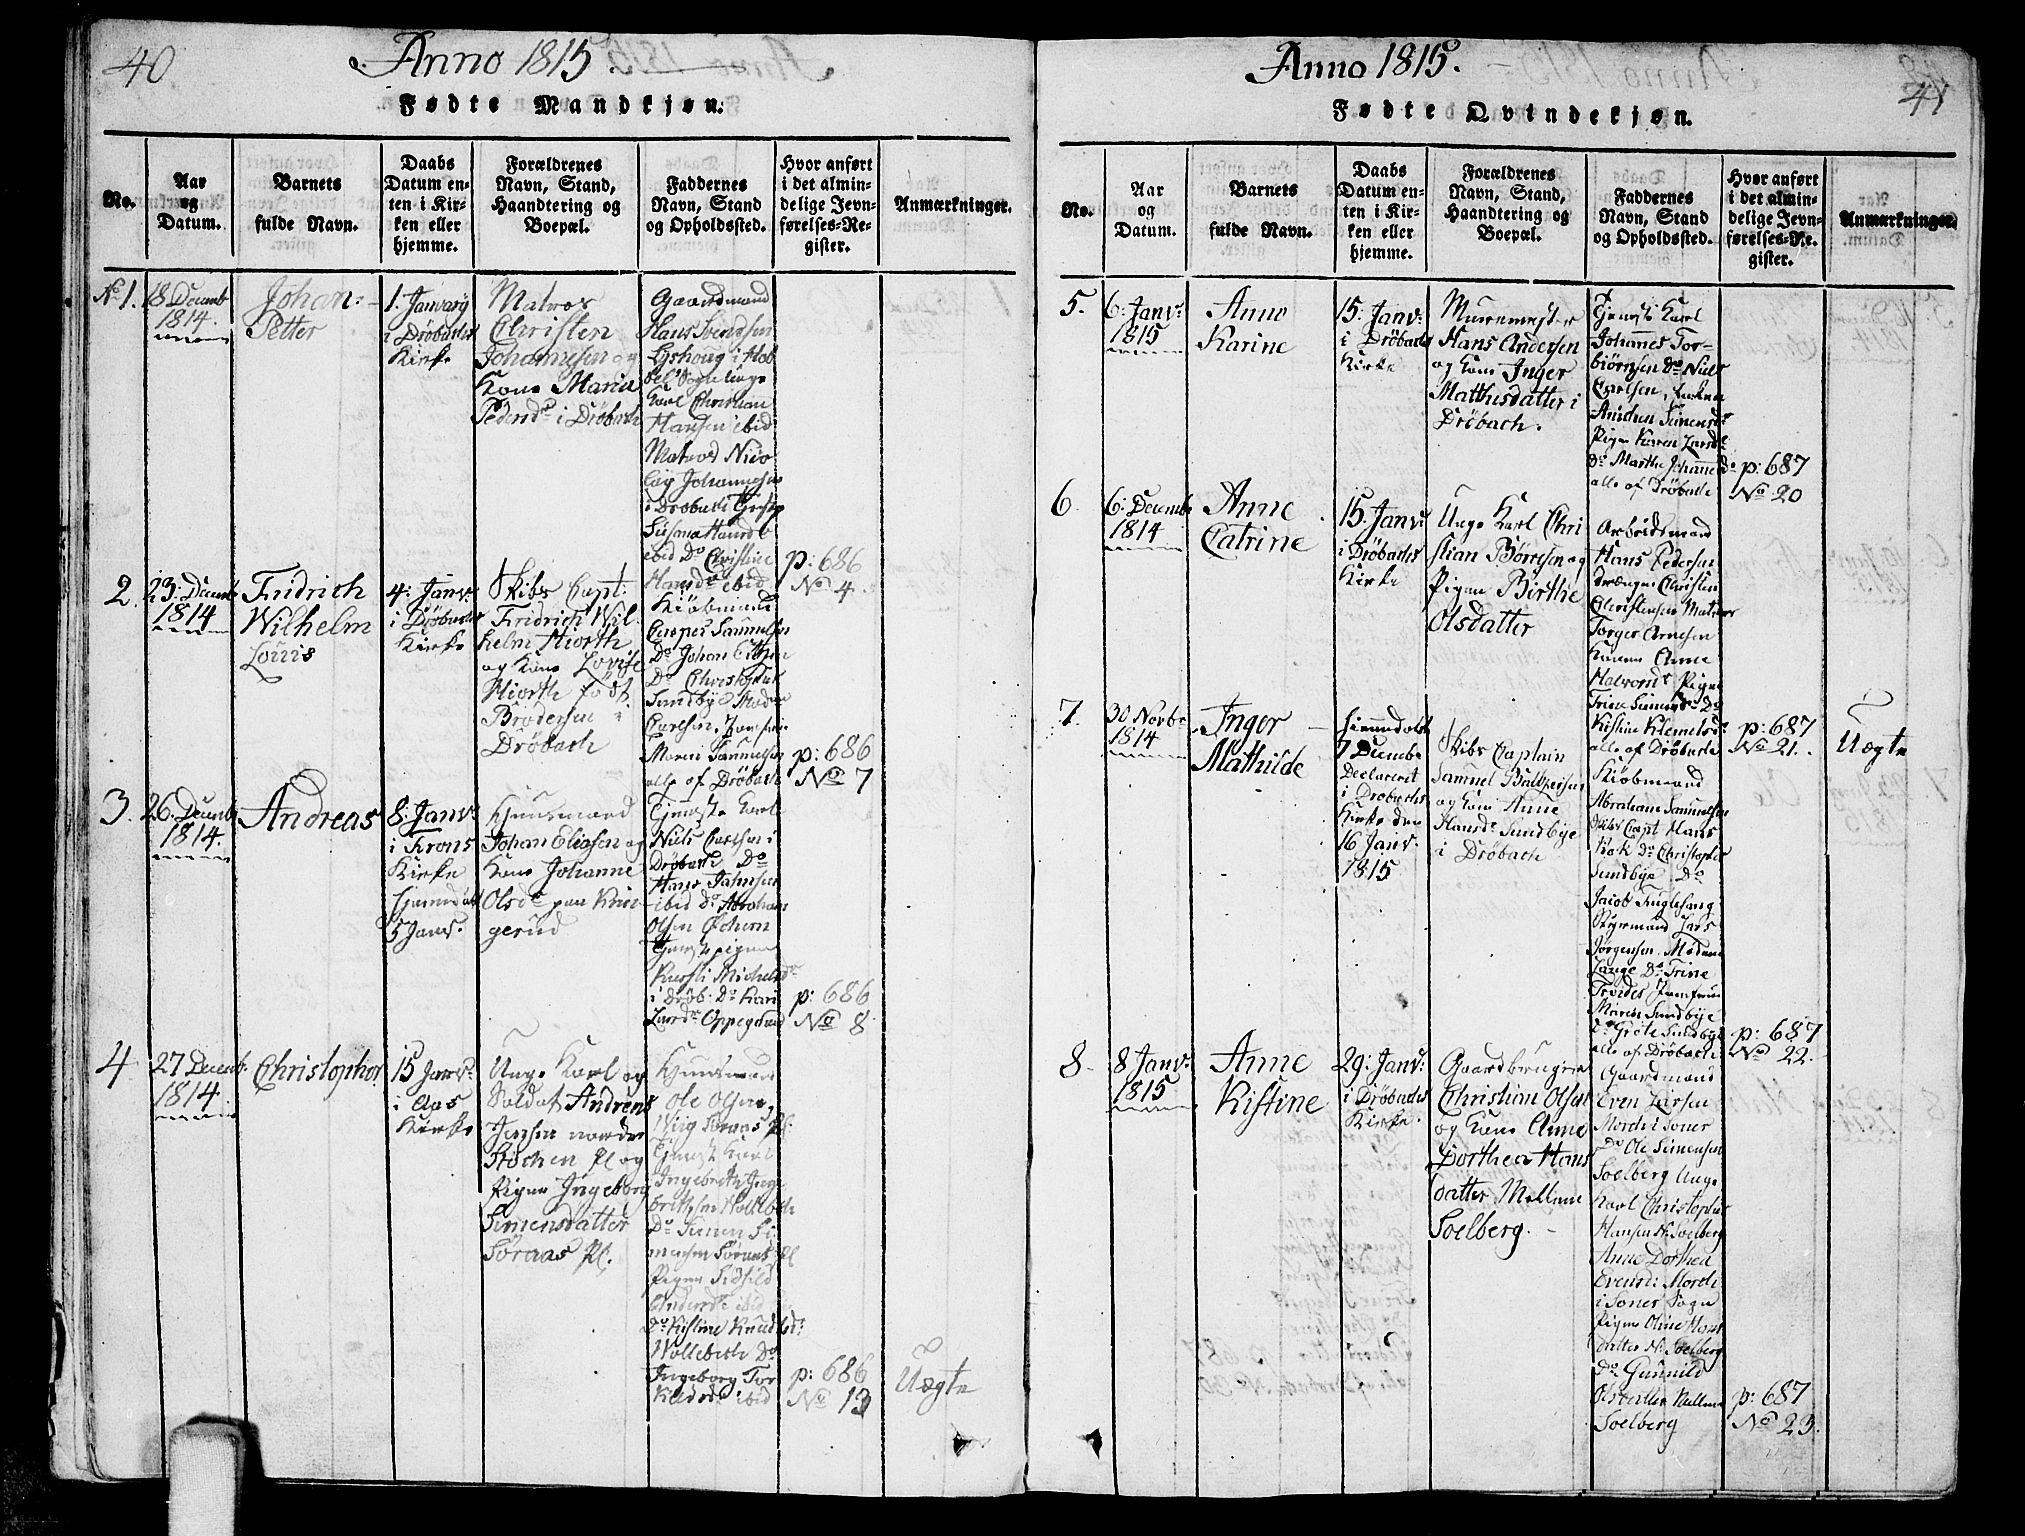 40
Anno 1815.
Fødte Mandkjøn.
No.
Aar
og
Datum.
Barnets
fulde Navn.
Daabs
Datum en-
ten i Kir-
ken eller
hjemme.
Forældrenes
Navn, Stand,
Haandtering og
Boepæl.
Faddernes
Navn, Stand
og Opholdssted.
Hvor anført
i det almin-
delige Jevn-
førelses-Re-
gister.
Anmærkninger.
No 1.
18 Decemb
1814.
Johan
Petter
1. Januarÿ
i Drøbachs
Kirke
Matros
Christen
Johannesen og
Kone Maria
Pedersd. i Drøbach
Gaardmand
Hans Svendsen
Karl Christian
Hansen ibid
Matros Nico
lay Johannesen
i Drøbach
Susna Hansd
ibid Do Christine
Hansdr ibid
p: 686
No 4.
2.
23. Decemb
1814
Fridrich
Wilhelm
Louis
4: Janv:
i Drøbachs
Kirke
Skibs Capt:
Fridrich Wil
helm Hiorth
og Kone Lovise
Hiorth født
Brodersen i
Drøbach
Kiøbmand
Casper Sammelsen
Do Johan
Do Christopher
Sundbye Mad
Carlsen,
Maren Sammelsen
alle af Drøbach
p: 686
No 7
3.
26 Decemb
1814.
Andreas
8. Janv:
i Krons
Kirke
hjemdøbt
5 Janv.
Huusmand
Johan Eliasen og
Kone Johanne
Olsdr paa Krin
gerud
Tjeneste Karl
Niels Carlsen i
Drøbach Do
Hans Jahnsen
ibid Do Abraham
Olsen
Tjeneste pigen
Kiersti Michelsd
i Drøb: Do Kari
Larsdr Oppegaard
p: 686
No 8
4
27 Decemb.
1814
Christopher
15 Janv.
i Aas
Kirke
Unge Karl og
Soldat Andreas
Jensen nordre
Støchen Pl og
Pigen Ingeborg
Simensdatter
Søraas Pl.
Huusmand
Ole Olsen
Wiig Søraas Pl.
Tjeneste Karl
Ingebreth Inge
brethsen Wollebech
Do Simen Si
mensen Søraas Pl
Pigen Sidsild
Andersdr ibid
Do Kistine Knudsd:
Wollebech Do
Ingeborg Tor
kildsdr ibid
p: 686
No 13
Uægte
Anno 1815.
41
Fødte Qvindekjøn.
No.
Aar
og
Datum.
Barnets
fulde Navn.
Daabs
Datum en-
ten i Kir-
ken eller
hjemme.
Forældrenes
Navn, Stand,
Haandtering og
Boepæl.
Faddernes
Navn, Stand
og Opholdssted.
Hvor anført
i det almin-
delige Jevn-
førelses-Re-
gister.
Anmærkninger.
5.
6: Janv:
1815
Anne
Karine
15. Janv:
i Drøbachs
Kirke
Muremester
Hans Andersen
og Kone Inger
Mathisdatter i
Drøbach.
Tjeneste Karl
Johannes Tor-
biørnsen Do Niels
Carlsen, Enken
Anichen Simensdr
Pigen Karen Larsdr
Do Marthe Johannesdr
alle af Drøbach
p: 687
No 20
6
6: Decemb
1814
Anne
Catrine
15. Janv:
i Drøbachs
Kirke
Unge Karl Chri
stian Børresen og
Pigen Birthe
Olsdatter
Arbeidsmand
Hans Pedersen
Drængen Christen
Christensen Matros
Torger Arnesen
Konen Anne
Halvorsdr Pigen
Trine Simensdr Do
Kistine Klemetsdr
alle af Drøbach
p: 687
No 21.
Uægte
7.
30 Novbr
1814
Inger
Mathilde
hjemmdøbt
7 Decembr
Declareret
i Drøbachs
Kirke den
16 Janv.
1815
Skibs Captain
Samuel Baltzersen
og Kone Anne
Hansdr Sundbye
i Drøbach
Kiøbmand
Abraham Sammelsen
Skibs Capt Hans
Kok Do Christopher
Sundbye Do
Jacob Fuglesang
Styrmand Lars
Jørgensen. Madame
Lange Do Trine
Trvedes Jomfrue
Maren Sundbye
Do Grote Sundbye
alle af Drøbach
p: 687
No 22.
8
8 Janv:
1815
Anne
Kistine
29: Janv:
i Drøbachs
Kirke.
Gaardbruger
Christian Olsen
og Kone Anne
Dorthea Hans
datter Mellem
Soelberg.
Gaardmand
Even Larsen
Mordt i Soner
Do Ole Simensen
Soelberg Unge
Karl Christopher
Hansen N. Soelberg
Anne Dorthea
Evensd: Mordt
i Soner Sogn
Pigen Oline Hans
datter N. Soelberg
Do Gunnild
Olsdatter Mellem
Soelberg
p: 687
No 23.